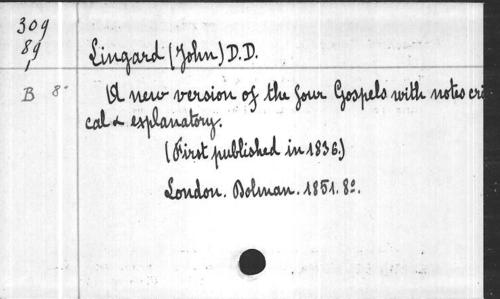 309
89
1
B 8º
Lingard (John) D.D.
A new version of the four Gospels with notes cri
cal & explanatory.
(First published in 1836.)
London. Dolman. 1851. 8º.